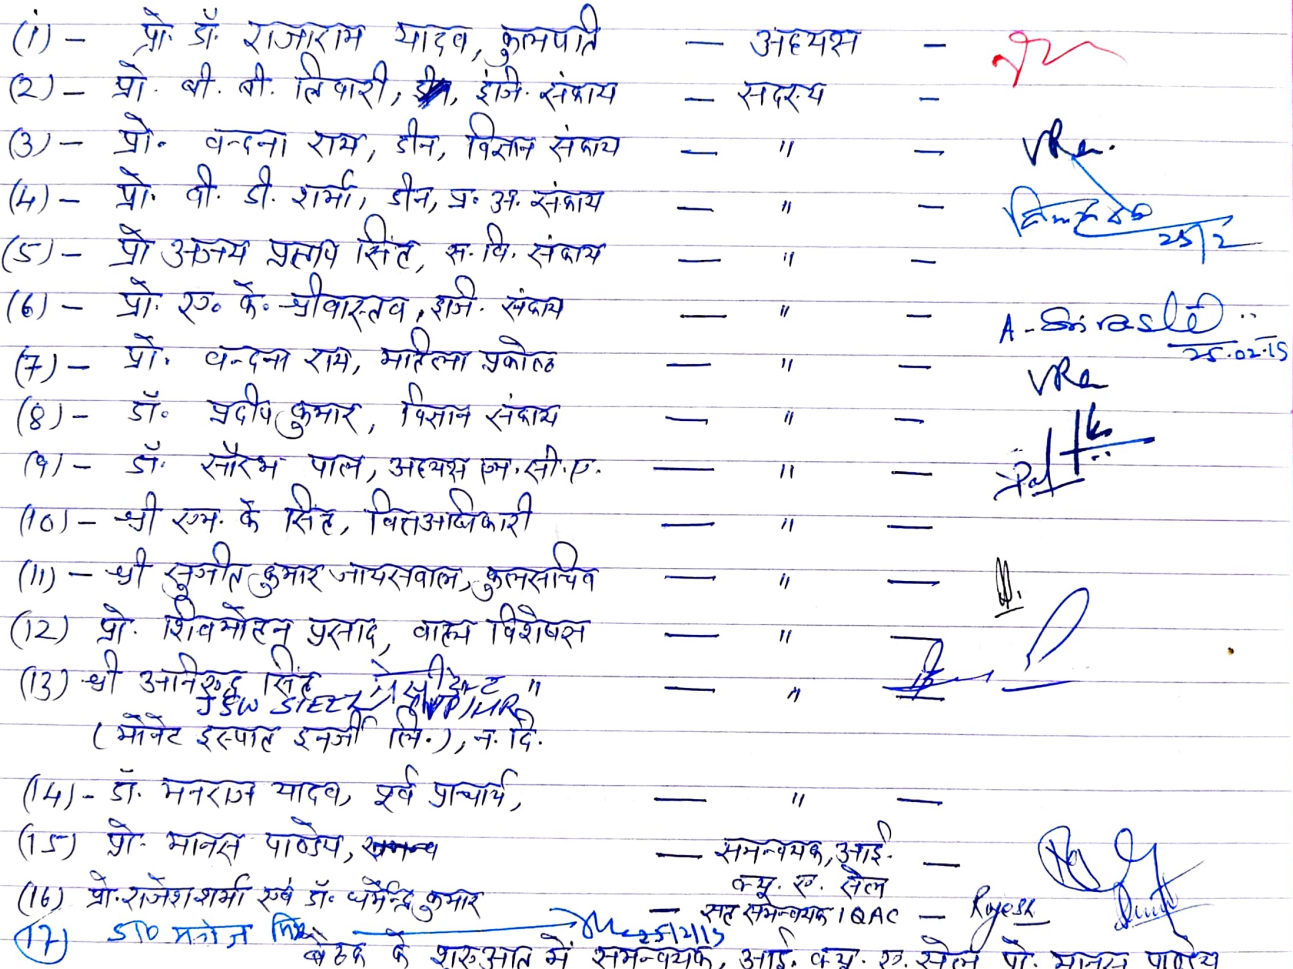 (1) - प्रो. डॉ. राजाराम यादव, कुलपति — अध्यक्ष —
(2) - प्रो. बी. बी. तिवारी, डीन, इंजि. संकाय — सदस्य —
(3) - प्रो. वन्दना राय, डीन, विज्ञान संकाय — " — VRa.
(4) - प्रो. वी. डी. शर्मा, डीन, प्र. अ. संकाय — " — 25/2
(5) - प्रो अजय प्रताप सिंह, स. वि. संकाय — " —
(6) - प्रो. ए. के. श्रीवास्तव, इंजि. संकाय — " —
25.02.19
(7) - प्रो. वन्दना राय, महिला प्रकोष्ठ — " — VRa
(8) - डॉ. प्रदीप कुमार, विज्ञान संकाय — " —
(9) - डॉ. सौरभ पाल, अध्यक्ष एम. सी. ए. — " — Pal
(10) - श्री एम. के सिंह, वित्तअधिकारी — " —
(11) - श्री सुजीत कुमार जायसवाल, कुलसचिव — " —
(12) प्रो. शिवमोहन प्रसाद, वाह्य विशेषज्ञ — " —
(13) श्री अनिरुद्ध सिंह, प्रेसीडेन्ट " — " —
JSW STEEL
(मोनेट इस्पात इनर्जी लि.), न. दि.
(14) - डॉ. मनराज यादव, पूर्व प्राचार्य, — " —
(15) प्रो. मानस पाण्डेय, — समन्वयक, आई. —
क्यू. ए. सेल
(16) प्रो. राजेश शर्मा एवं डॉ. धर्मेन्द्र कुमार — सह समन्वयक IQAC — Rajesh
(17) डा0 मनोज मिश्र 25/2/19
बैठक के शुरुआत में समन्वयक, आई. क्यू. ए. सेल प्रो. मानस पाण्डेय